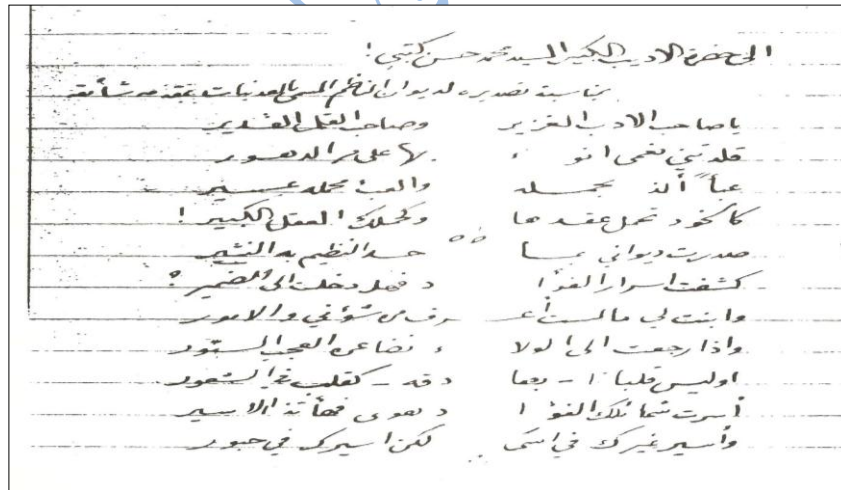 الى حضرة الاديب الكبير السيد محمد حسن كتبي!
بمناسبة تصديره لديوان الناظم المسمى بمقدمة شائقة
ياصاحب الادب الغزير وصاحب القلم القدير
قلدتني نعمى انو ء بها على مر الدهور
عبأ ألذ بحمله والعبء محمله عسير
كالخود تحمل عقدها وكحملك العقل الكبير!
صدرت ديواني بما حسد النظيم به النثير
كشفت اسرار الفؤا د فهل دخلت الى الضمير؟
وابنت لي مالست أعـ ـرف من شؤني والامور
واذا رجعت الى الولا ء نضا عن العجب الستور
اوليس قلبانا - بعما دقه - كقلب في الشعور
أسرت شمائلك الفؤا د بهوى فهأنذا الاسير
وأسير غيرك في اسى لكن اسيرك في حبور